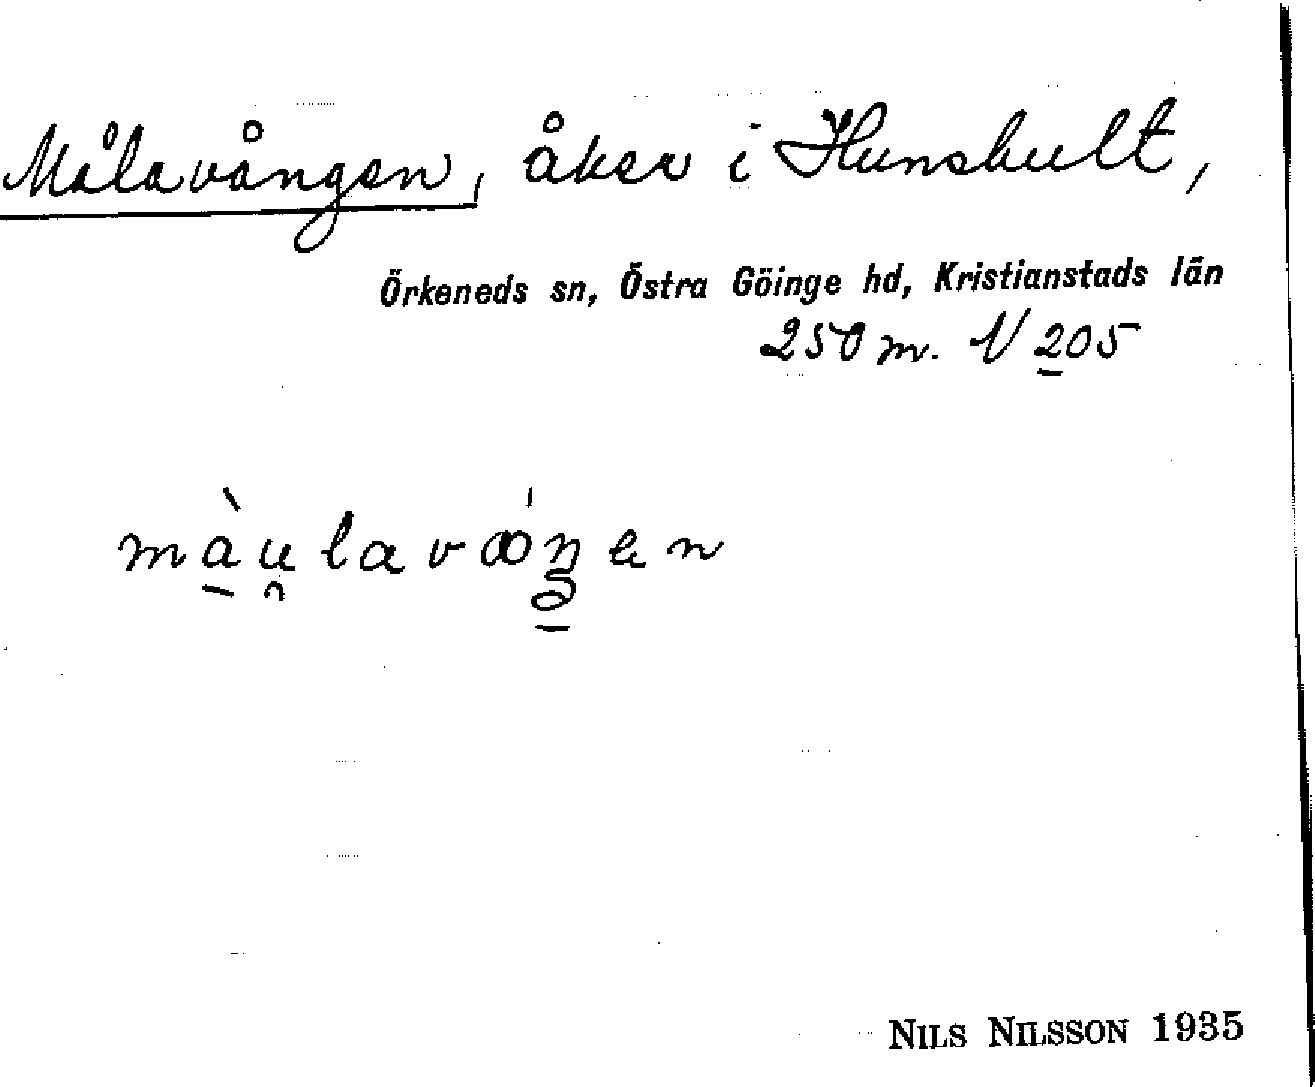 Målavången, åker i Hunshult,
Örkeneds sn, Östra Göinge hd, Kristianstads län
250 m. N 205
màu̯lavꝏ́ŋen
NILS NILSSON 1935